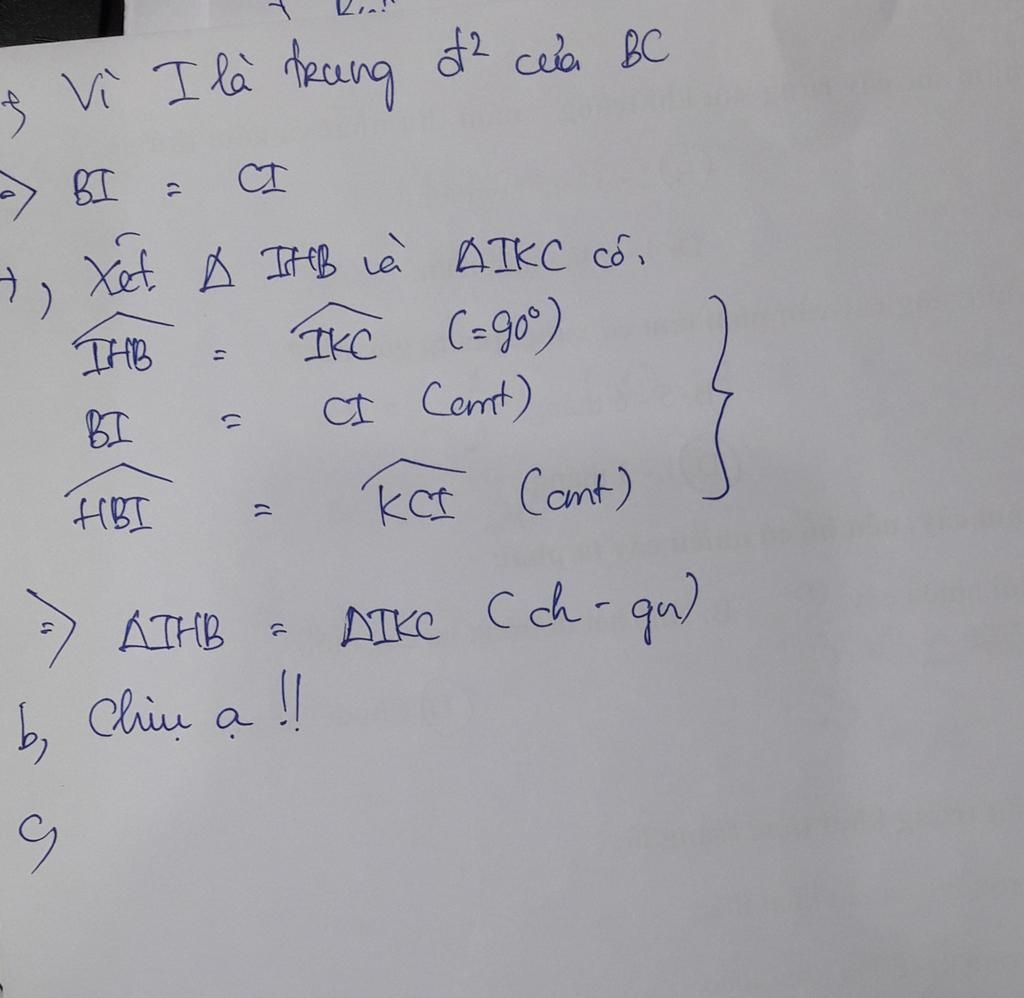 Vì I là trung đ² của BC
=> BI = CI
+, Xét Δ IHB và ΔIKC có.
IHB = IKC (=90°)
BI = CI (cmt)
HBI = KCI (cmt)
=> ΔIHB = ΔIKC (ch - gn)
b, Chịu ạ !!
c,